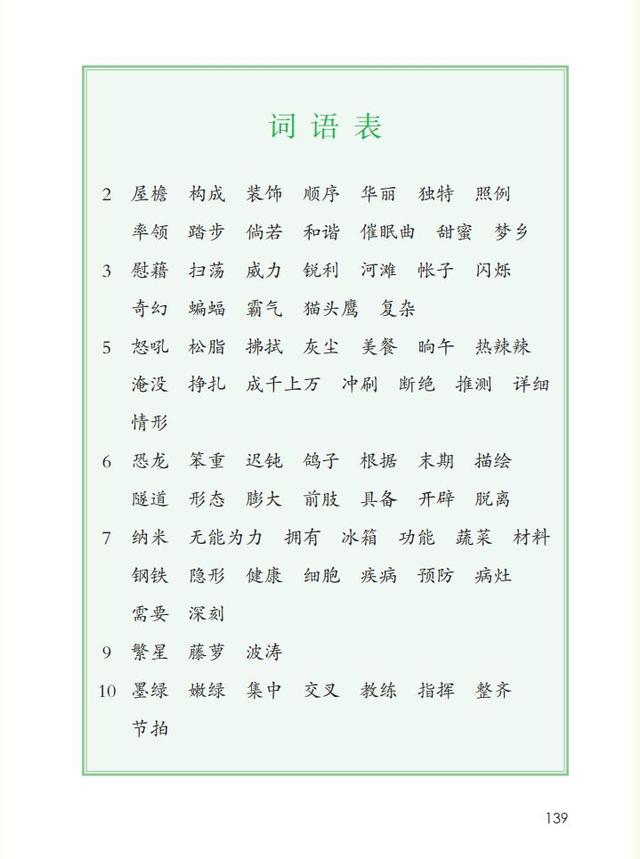 词语表
2 屋檐 构成 装饰 顺序 华丽 独特 照例
率领 踏步 倘若 和谐 催眠曲 甜蜜 梦乡
3 慰藉 扫荡 威力 锐利 河滩 帐子 闪烁
奇幻 蝙蝠 霸气 猫头鹰 复杂
5 怒吼 松脂 拂拭 灰尘 美餐 晌午 热辣辣
淹没 挣扎 成千上万 冲刷 断绝 推测 详细
情形
6 恐龙 笨重 迟钝 鸽子 根据 末期 描绘
隧道 形态 膨大 前肢 具备 开辟 脱离
7 纳米 无能为力 拥有 冰箱 功能 蔬菜 材料
钢铁 隐形 健康 细胞 疾病 预防 病灶
需要 深刻
9 繁星 藤萝 波涛
10 墨绿 嫩绿 集中 交叉 教练 指挥 整齐
节拍
139